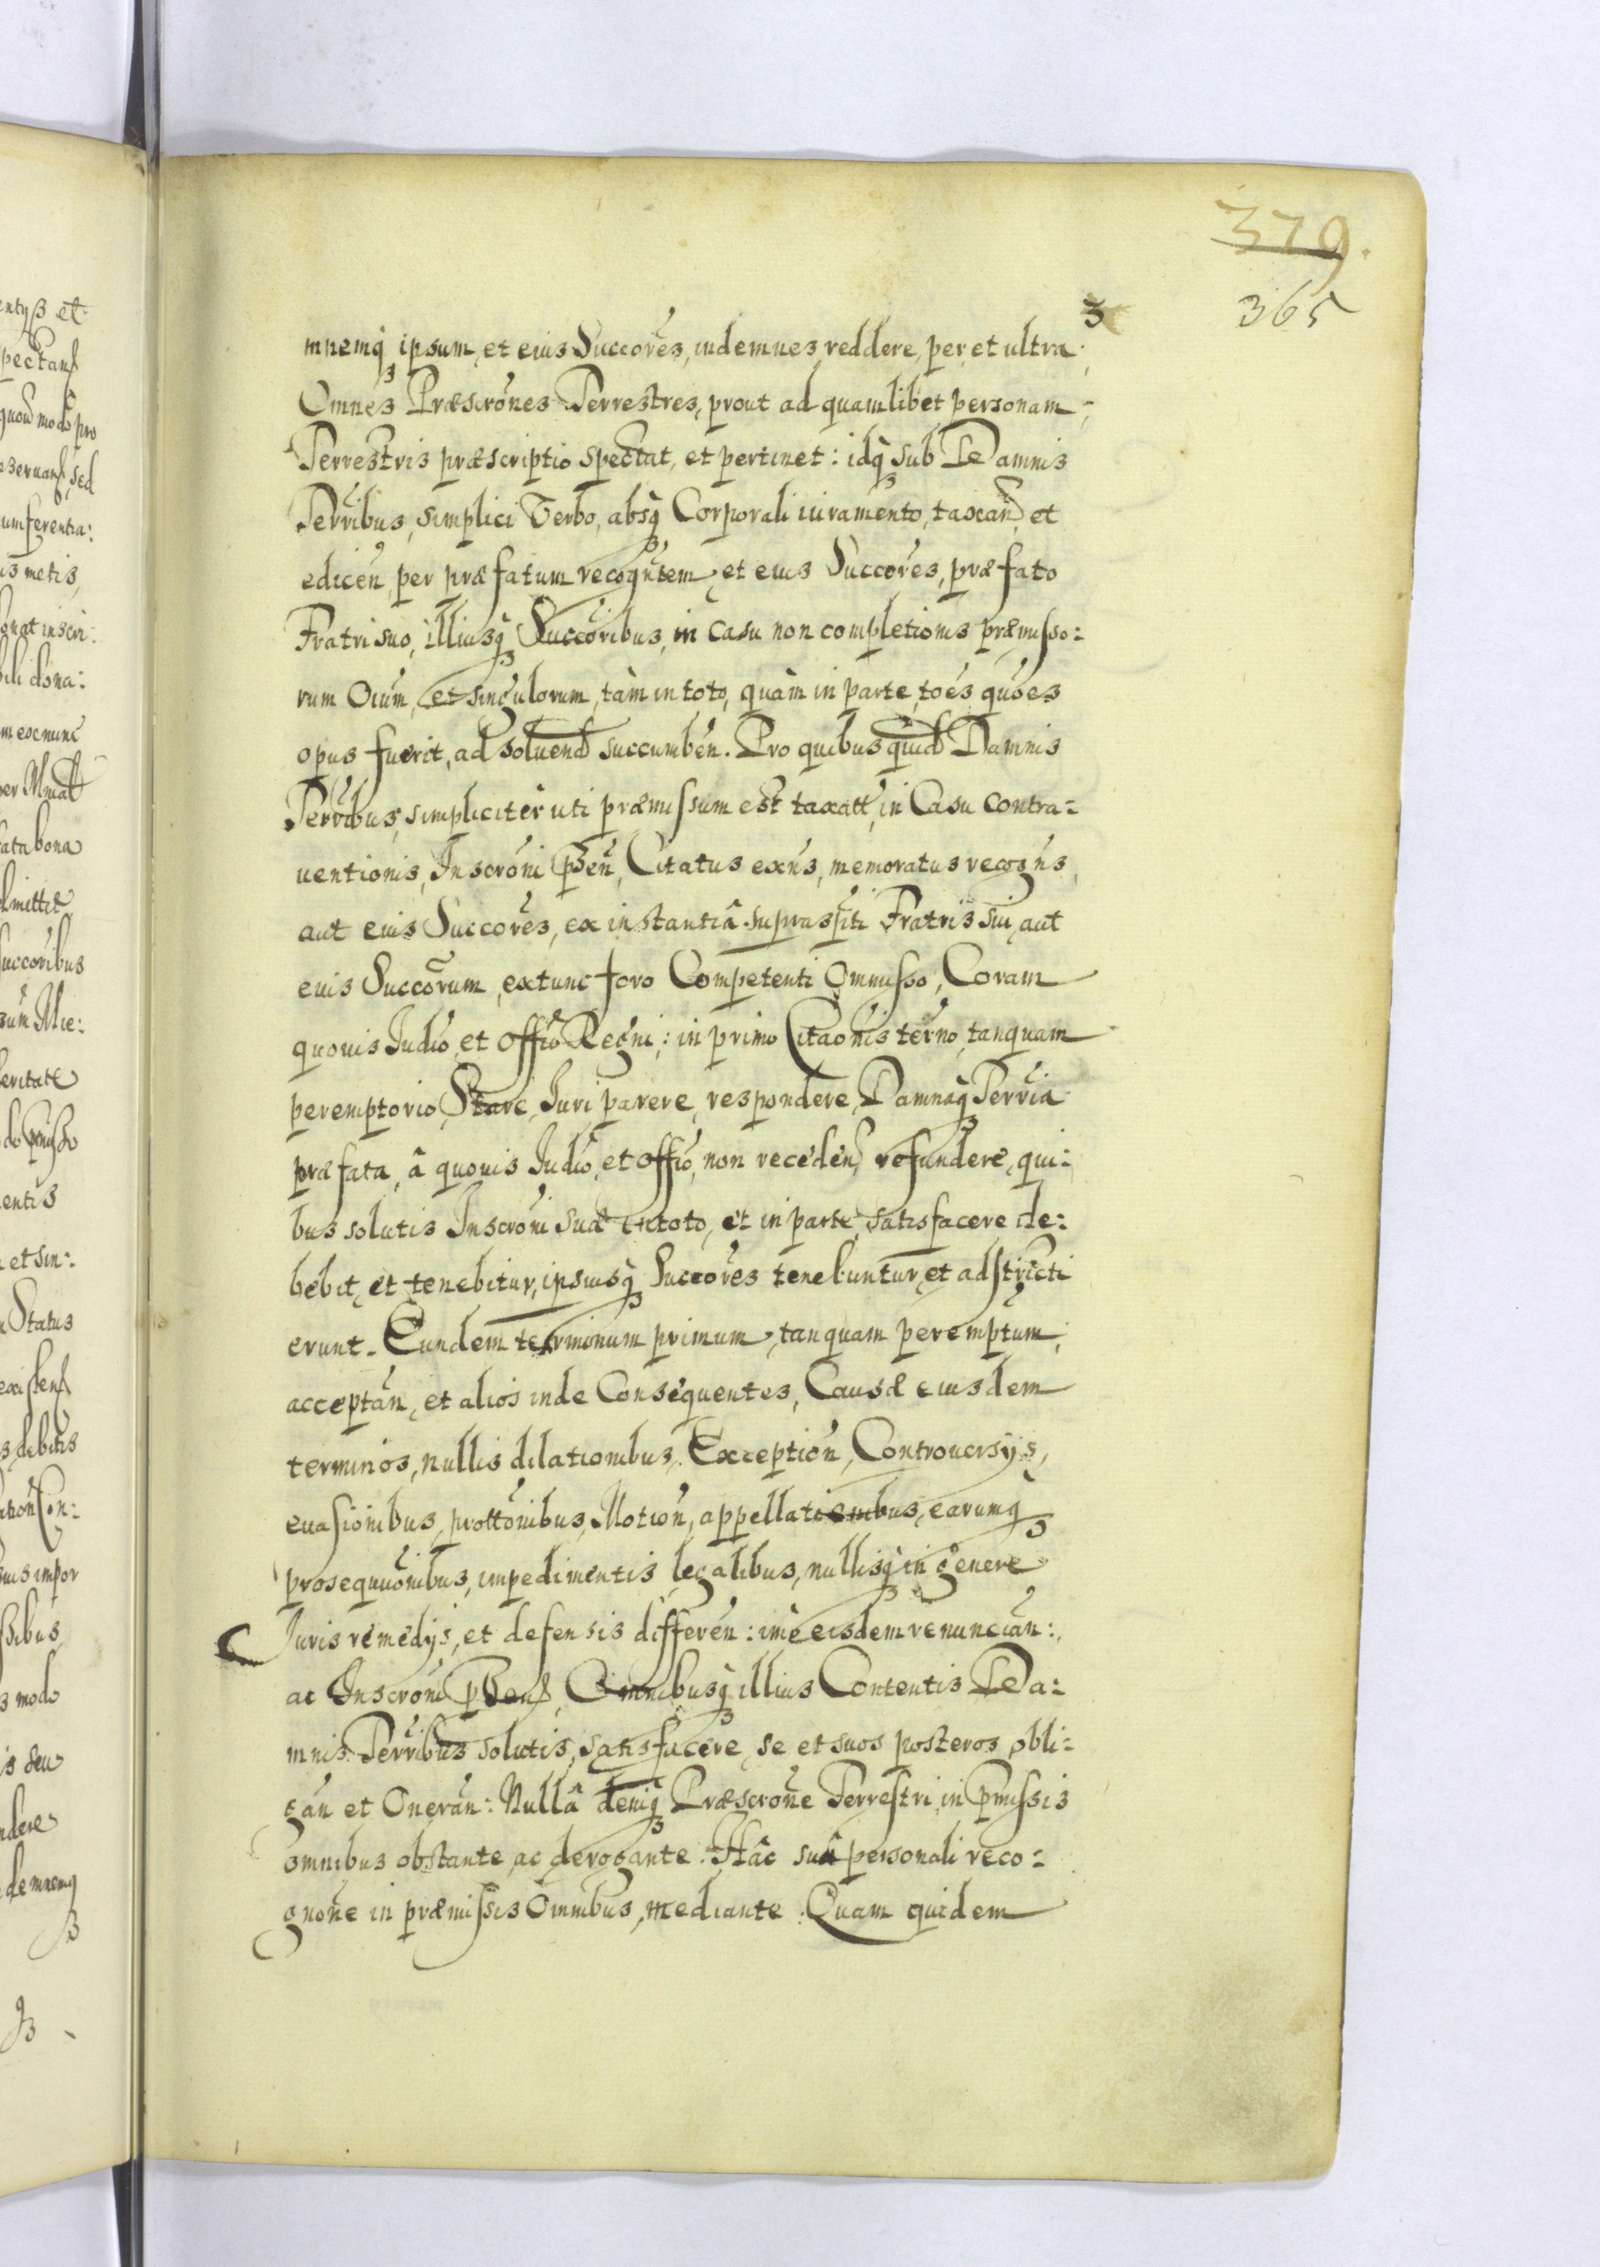 379.
365
3
mnemq3 ipsum, et eius Succores, indemnes, reddere, per et ultra
Omnes Præscrones Terrestres, prout ad quamlibet personam
Terrestris præscriptio spectat, et pertinet: idq3 sub Damnis
Terribus, simplici Verbo, absq3 Corporali iuramento, taxan, et
edicen, per præfatum recogntem, et eius Succores, præfato
Fratri suo, illiusq3 Succoribus, in Casu non completionis præmisso:
rum Oium, et singulorum, tàm in toto, quàm in parte, toes quoes
opus fuerit, ad soluend succumben. Pro quibus quid Damnis
Terribus, simpliciter uti præmissum est taxatt, in Casu Contra:
uentionis, Inscroni pden, Citatus exns, memoratus recogns,
aut eius Succores, ex instantiâ suprasspti Fratris sui, aut
eius Succorum, extunc foro Competenti Ommisso, Coram
quouis Judio, et Offio Regni,: in primo Citaonis terno, tanquam
peremptorio, Stare, Juri parere, respondere, Damnaq3 Terria
præfata, â quouis Judio, et offio, non receden, refundere, qui:
bus solutis Inscroni suæ in toto, et in parte, satisfacere de:
bebit, et tenebitur, ipsiusq3 Succores tenebuntur, et adstricti
erunt. Eundem terminum primum, tanquam peremptum,
acceptan, et alios inde Consequentes, Causæ eiusdem
terminos, nullis dilationibus, Exception, Controuersijs,
euasionibus, prottonibus, Motion, appellationibus, earumq3
prosequuonibus, impedimentis legalibus, nullisq3 in genere
Juris remedijs, et defensis differen: imè eisdem renuncian:,
ac Inscroni pden, Omnibusq3 illius Contentis Da:
mnis Terribus solutis, satisfacere, se et suos posteros obli:
gan et Oneran: Nullâ deniq3 Præscrone Terrestri, in Pmissis
omnibus obstante, ac derogante. Hâc suâ personali reco:
gnone in præmissis Omnibus, mediante. Quam quidem